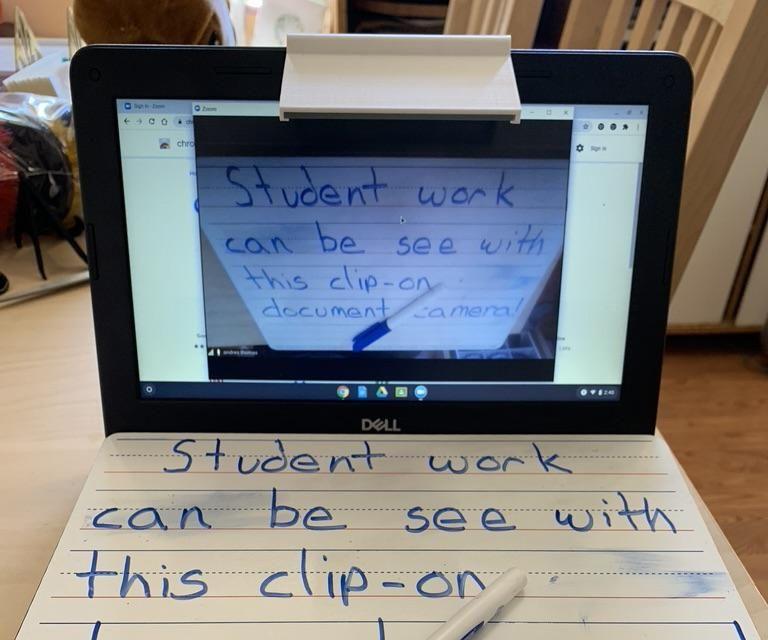 Sign In - Zoom
Zoom
chro
Sign in
Student work
can be see with
this clip-on
document camera!
andrea thomas
2:40
DELL
Student work
can be see with
this clip-on